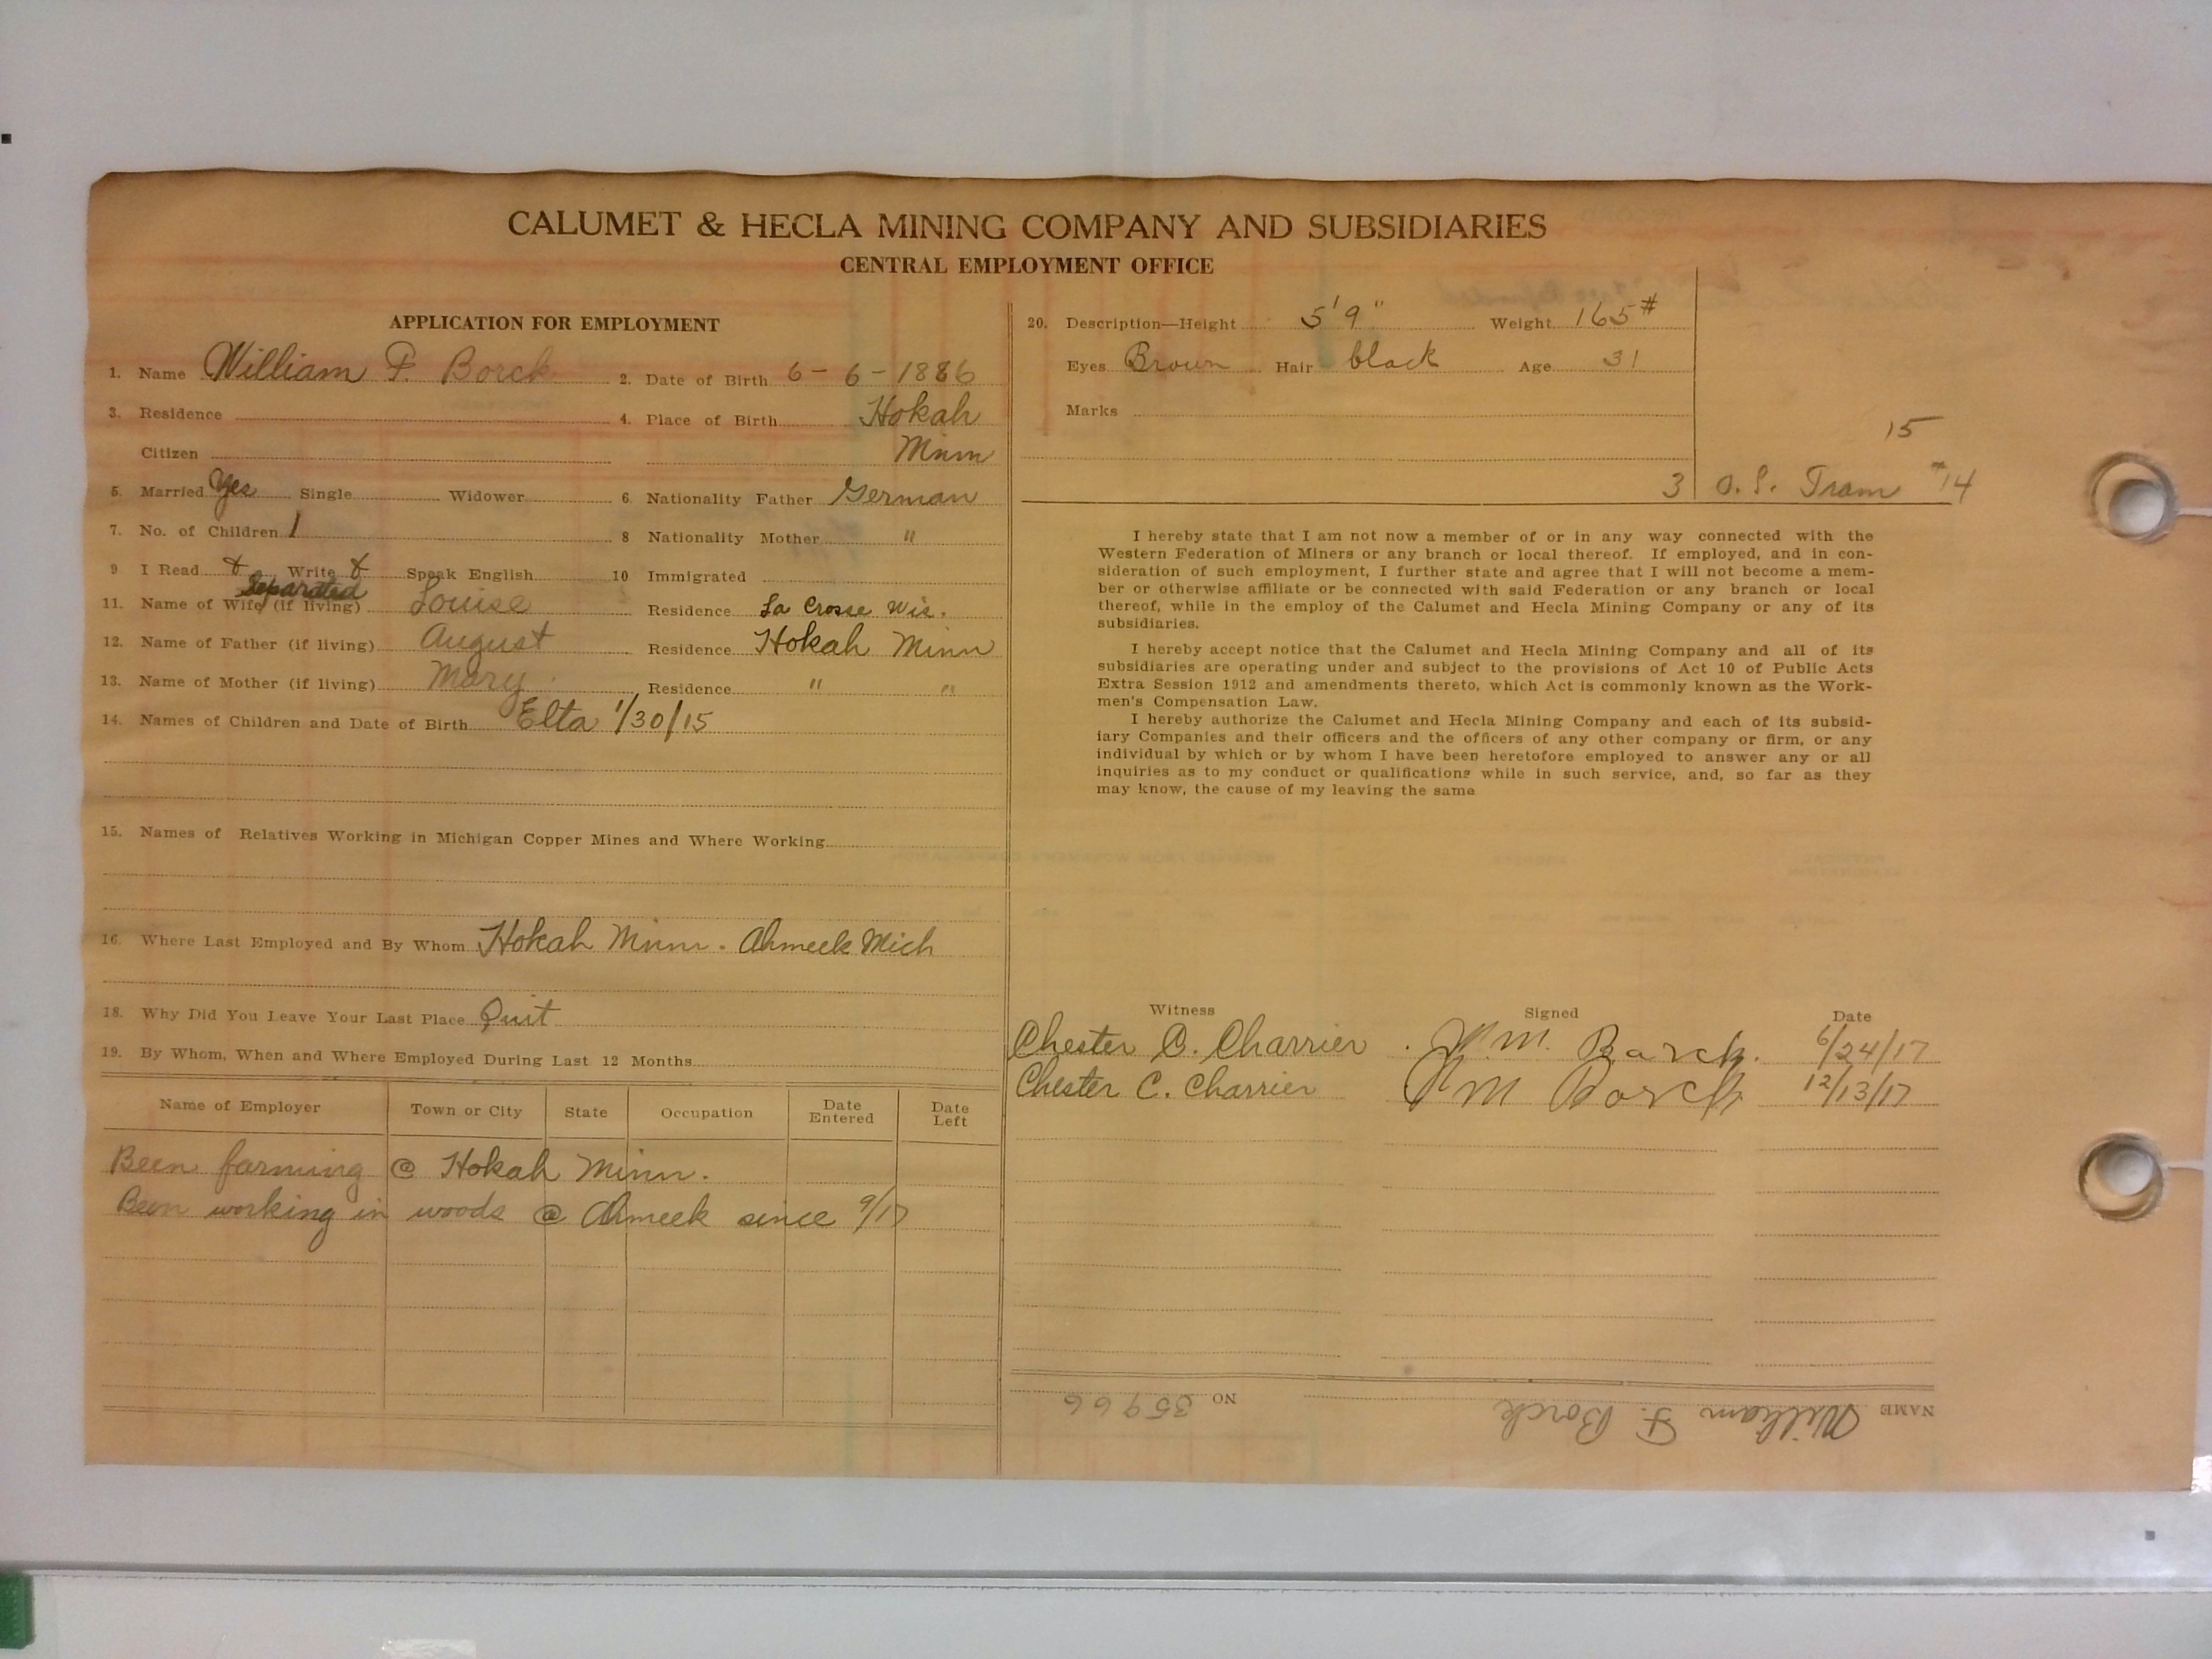 CALUMET & HECLA MINING COMPANY AND SUBSIDIARIES
CENTRAL EMPLOYMENT OFFICE
APPLICATION FOR EMPLOYMENT
1. Name William F. Borck 2. Date of Birth 6-6-1886
3. Residence 4. Place of Birth Hokah
Citizen Minn
5. Married Yes Single Widower 6. Nationality Father German
7. No. of Children 1 8 Nationality Mother "
9 I Read & Write & Speak English 10 Immigrated
Separated
11. Name of Wife (if living) Louise Residence La Crosse Wis.
12. Name of Father (if living) August Residence Hokah Minn
13. Name of Mother (if living) Mary Residence " "
14. Names of Children and Date of Birth Elta 1/30/15
15. Names of Relatives Working in Michigan Copper Mines and Where Working
16. Where Last Employed and By Whom Hokah Minn. Ahmeek Mich
18. Why Did You Leave Your Last Place Quit
19. By Whom, When and Where Employed During Last 12 Months
Name of Employer Town or City State Occupation Date Entered Date Left
Been farming @ Hokah Minn.
Been working in woods @ Ahmeek since 9/17
20. Description—Height 5'9" Weight 165#
Eyes Brown Hair black Age 31
Marks
15
3 O.S. Tram #14
I hereby state that I am not now a member of or in any way connected with the
Western Federation of Miners or any branch or local thereof. If employed, and in con-
sideration of such employment, I further state and agree that I will not become a mem-
ber or otherwise affiliate or be connected with said Federation or any branch or local
thereof, while in the employ of the Calumet and Hecla Mining Company or any of its
subsidiaries.
I hereby accept notice that the Calumet and Hecla Mining Company and all of its
subsidiaries are operating under and subject to the provisions of Act 10 of Public Acts
Extra Session 1912 and amendments thereto, which Act is commonly known as the Work-
men's Compensation Law.
I hereby authorize the Calumet and Hecla Mining Company and each of its subsid-
iary Companies and their officers and the officers of any other company or firm, or any
individual by which or by whom I have been heretofore employed to answer any or all
inquiries as to my conduct or qualifications while in such service, and, so far as they
may know, the cause of my leaving the same
Witness Signed Date
Chester C. Charrier Wm. Borck. 6/24/17
Chester C. Charrier Wm Borck 12/13/17
NAME William F. Borck NO 35966